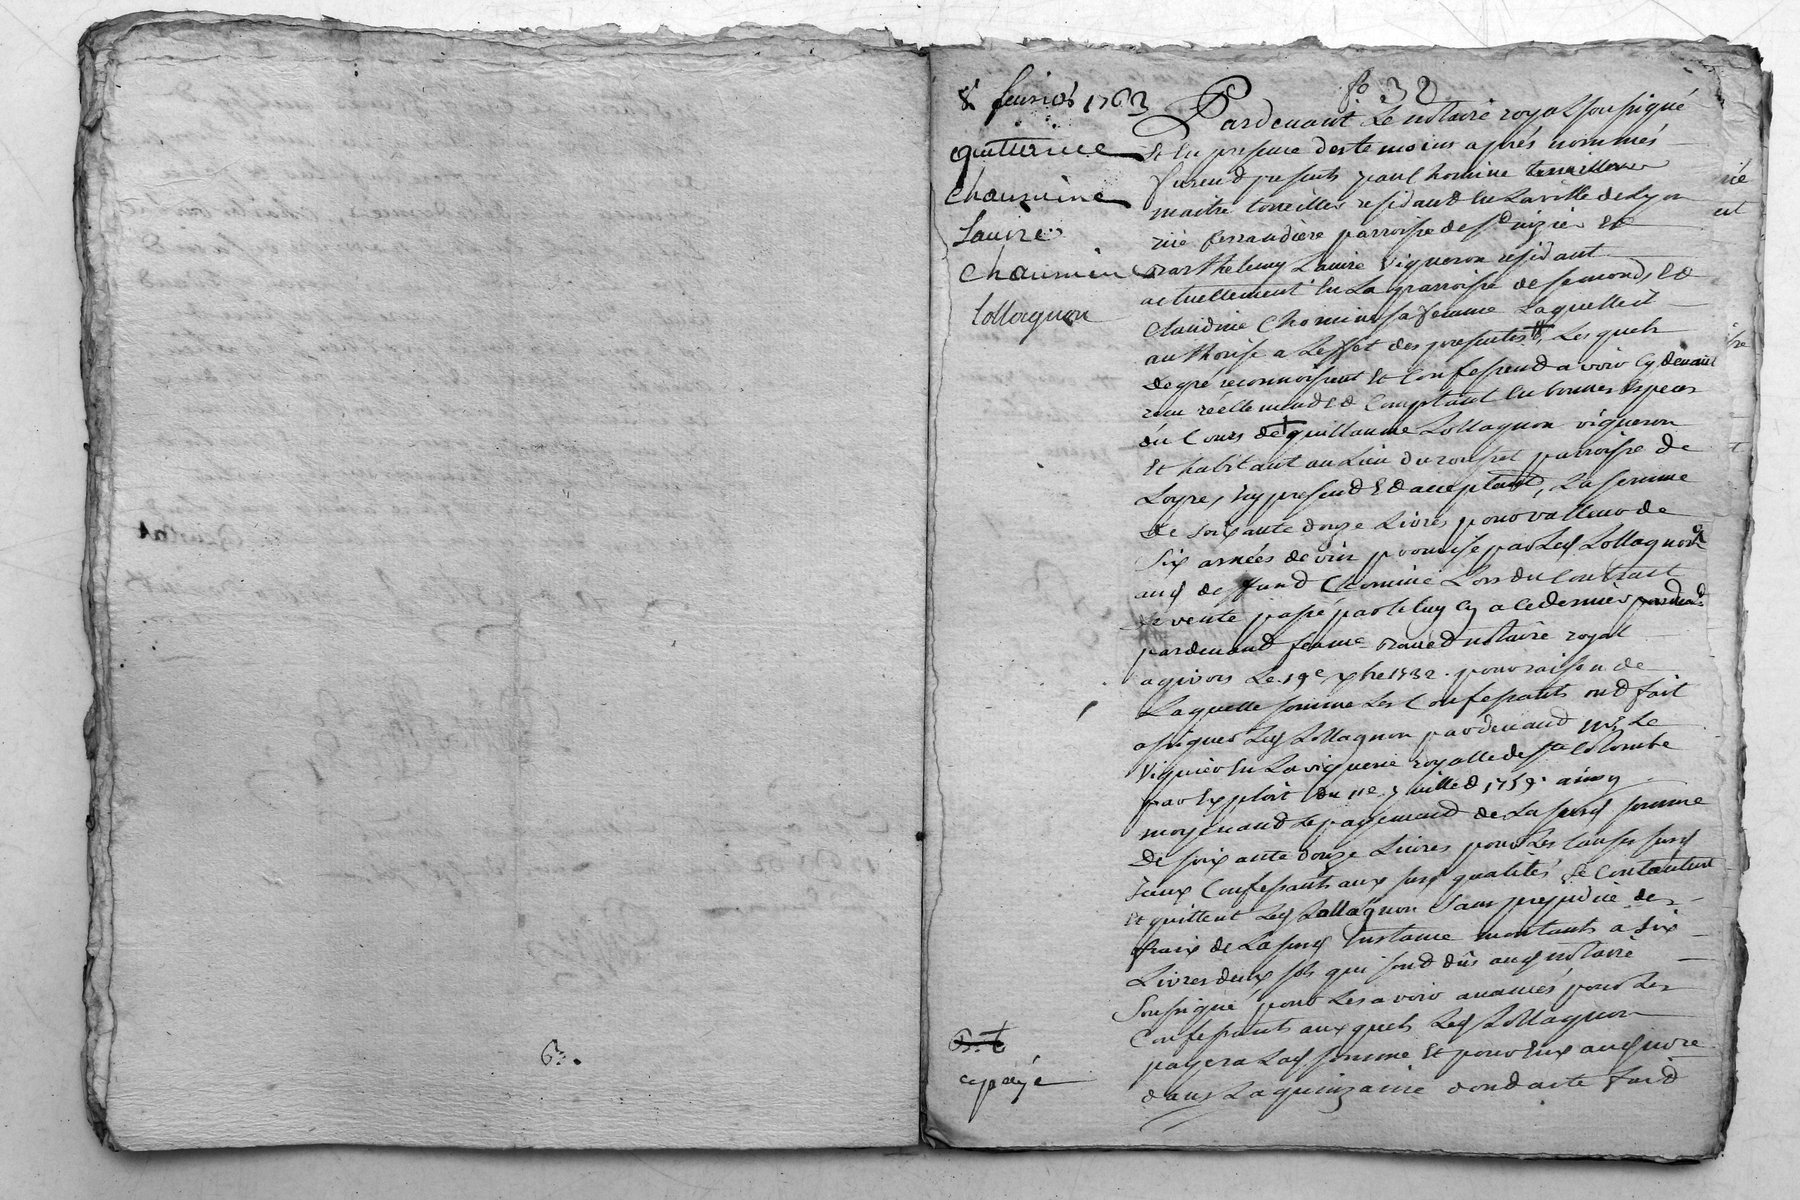 63.
fo 32
8 feurier 1763
quittance
chaumine
Lauire
chaumine
Lollagnon
Pardeuant Le notaire royal soussigné
Et En presence des temoins aprés nommés
furend presents paul homine
maitre tonneillier residand En La ville de Lyon
rüe ferrandiere parroisse de st nizier Et
Barthelemy Lauire Vigneron résidant
actuellement En La parroisse de semond, Ed
Claudine Chomine sa femme Laquelle il
authorise a Leffet des presentes, Lesquels
de gré reconnoissent Et Confessend avoir Cy deuant
recu réellemend Ed Comptant En bonnes Especes
du Cours de guillaume Lollagnon vigneron
Et habitant au Lieu du rousset parroisse de
Loyre, Icy presend Ed acceptand, La somme
de soixante douze Livres pour valleur de
Six asnées de vin promise par Led Lollagnon
aud deffund Chomine Lors du Contract
de vente passé par le luy Cy a ce dernier
pardeuand feu me notaire royal
a givors Le 19e xbre 1732. pour raison de
Laquelle somme Les Confessants ond fait
assigner Led Lollagnon pardeuand mr Le
Viguier En La viguerie royalle de ste Colombe
par Exploit du 11e juillied 1759. ainsy
moyenand Le payemend de La susd somme
De soixante douze Livres pour Les Causes susd
Iceux Confessants aux susd qualités se Contantent
Et quittent Led Lollagnon sans prejudice des
fraix de La susd Instance montants a six
Livres deux sols qui sond dûs aud notaire
Soussigné pour Les avoir avancés pour Les
Confessants auxquels Led Lollagnon
payera Lad somme Et pour Eux aud nore
dans La quinzaine dond acte faid
payé